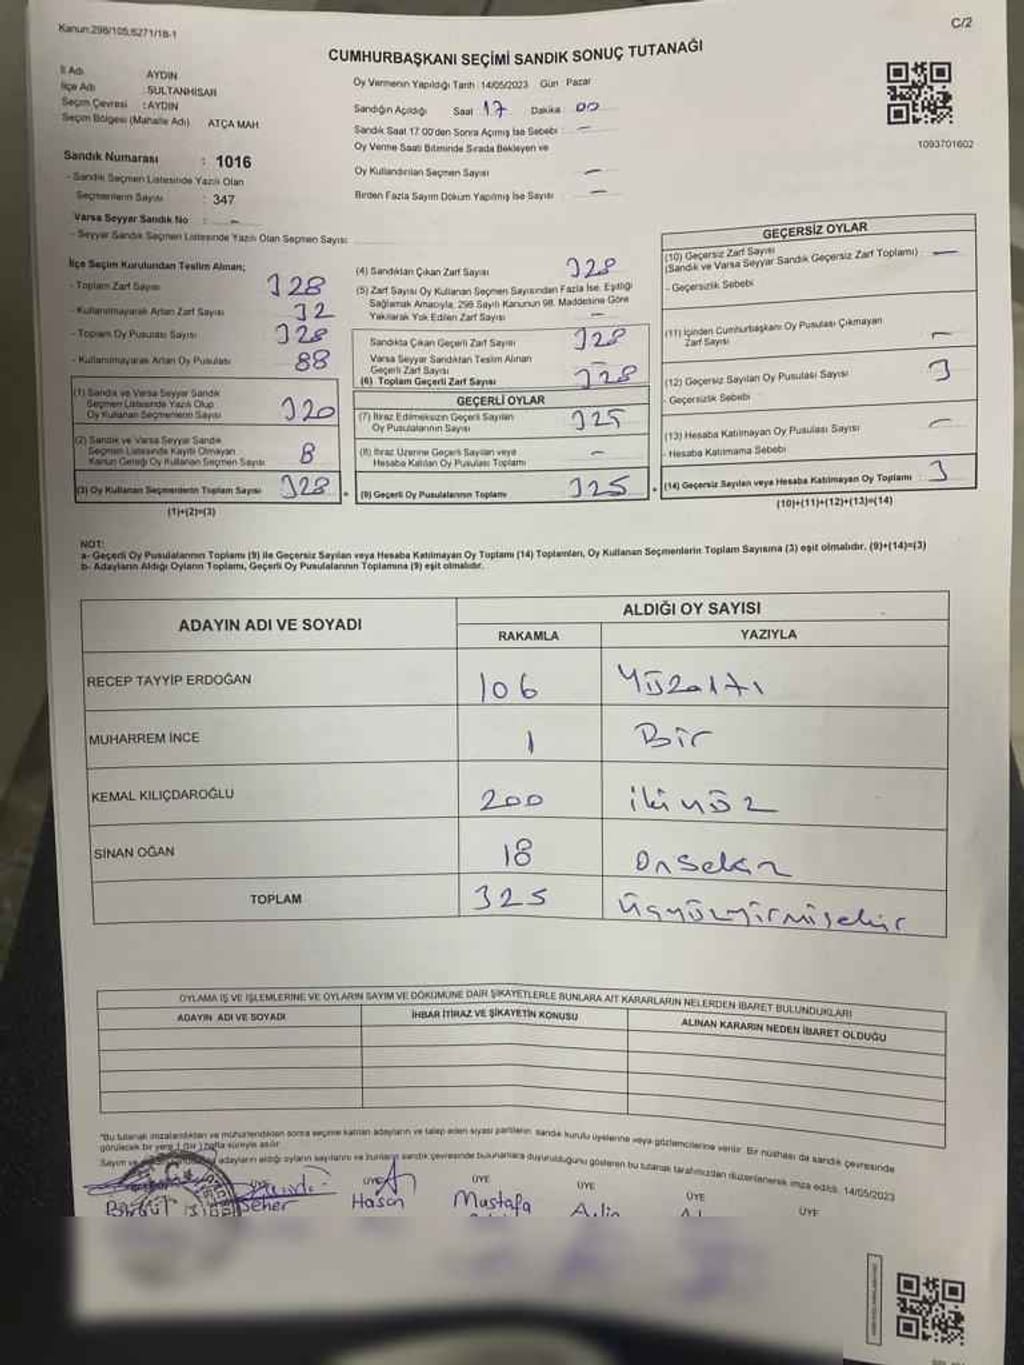 Kanun:298/105,6271/18-1
C/2
CUMHURBAŞKANI SEÇİMİ SANDIK SONUÇ TUTANAĞI
İl Adı : AYDIN
İlçe Adı : SULTANHİSAR
Seçim Çevresi : AYDIN
Seçim Bölgesi (Mahalle Adı) ATÇA MAH.
Sandık Numarası : 1016
- Sandık Seçmen Listesinde Yazılı Olan
Seçmenlerin Sayısı : 347
Varsa Seyyar Sandık No : -
- Seyyar Sandık Seçmen Listesinde Yazılı Olan Seçmen Sayısı:
Oy Vermenin Yapıldığı Tarih : 14/05/2023 Gün : Pazar
Sandığın Açıldığı Saat 17 Dakika 00
Sandık Saat 17.00'den Sonra Açılmış İse Sebebi : -
Oy Verme Saati Bitiminde Sırada Bekleyen ve
Oy Kullandırılan Seçmen Sayısı -
Birden Fazla Sayım Döküm Yapılmış İse Sayısı : -
1093701602
İlçe Seçim Kurulundan Teslim Alınan;
- Toplam Zarf Sayısı 328
- Kullanılmayarak Artan Zarf Sayısı 32
- Toplam Oy Pusulası Sayısı 328
- Kullanılmayarak Artan Oy Pusulası 88
(1) Sandık ve Varsa Seyyar Sandık
Seçmen Listesinde Yazılı Olup
Oy Kullanan Seçmenlerin Sayısı 320
(2) Sandık ve Varsa Seyyar Sandık
Seçmen Listesinde Kayıtlı Olmayan
Kanun Gereği Oy Kullanan Seçmen Sayısı 8
(3) Oy Kullanan Seçmenlerin Toplam Sayısı 328
(1)+(2)=(3)
(4) Sandıktan Çıkan Zarf Sayısı 328
(5) Zarf Sayısı Oy Kullanan Seçmen Sayısından Fazla İse, Eşitliği
Sağlamak Amacıyla, 298 Sayılı Kanunun 98. Maddesine Göre
Yakılarak Yok Edilen Zarf Sayısı -
Sandıkta Çıkan Geçerli Zarf Sayısı 328
Varsa Seyyar Sandıktan Teslim Alınan
Geçerli Zarf Sayısı -
(6) Toplam Geçerli Zarf Sayısı 328
GEÇERLİ OYLAR
(7) İtiraz Edilmeksizin Geçerli Sayılan
Oy Pusulalarının Sayısı 325
(8) İtiraz Üzerine Geçerli Sayılan veya
Hesaba Katılan Oy Pusulası Toplamı -
(9) Geçerli Oy Pusulalarının Toplamı 325
GEÇERSİZ OYLAR
(10) Geçersiz Zarf Sayısı
(Sandık ve Varsa Seyyar Sandık Geçersiz Zarf Toplamı) -
- Geçersizlik Sebebi
(11) İçinden Cumhurbaşkanı Oy Pusulası Çıkmayan
Zarf Sayısı -
(12) Geçersiz Sayılan Oy Pusulası Sayısı : 3
- Geçersizlik Sebebi
(13) Hesaba Katılmayan Oy Pusulası Sayısı : -
- Hesaba Katılmama Sebebi
(14) Geçersiz Sayılan veya Hesaba Katılmayan Oy Toplamı : 3
(10)+(11)+(12)+(13)=(14)
NOT:
a- Geçerli Oy Pusulalarının Toplamı (9) ile Geçersiz Sayılan veya Hesaba Katılmayan Oy Toplamı (14) Toplamları, Oy Kullanan Seçmenlerin Toplam Sayısına (3) eşit olmalıdır. (9)+(14)=(3)
b- Adayların Aldığı Oyların Toplamı, Geçerli Oy Pusulalarının Toplamına (9) eşit olmalıdır.
ADAYIN ADI VE SOYADI
ALDIĞI OY SAYISI
RAKAMLA YAZIYLA
RECEP TAYYİP ERDOĞAN 106 Yüzaltı
MUHARREM İNCE 1 Bir
KEMAL KILIÇDAROĞLU 200 ikiyüz
SİNAN OĞAN 18 Onsekiz
TOPLAM 325
OYLAMA İŞ VE İŞLEMLERİNE VE OYLARIN SAYIM VE DÖKÜMÜNE DAİR ŞİKAYETLERLE BUNLARA AİT KARARLARIN NELERDEN İBARET BULUNDUKLARI
ADAYIN ADI VE SOYADI İHBAR İTİRAZ VE ŞİKAYETİN KONUSU ALINAN KARARIN NEDEN İBARET OLDUĞU
*Bu tutanak imzalandıktan ve mühürlendikten sonra seçime katılan adayların ve talep eden siyasi partilerin sandık kurulu üyelerine veya gözlemcilerine verilir. Bir nüshası da sandık çevresinde
görülecek bir yere 1 (bir) hafta süreyle asılır.
Sayım ve adayların aldığı oyların sayılarını ve bunların sandık çevresinde bulunanlara duyurulduğunu gösteren bu tutanak tarafımızdan düzenlenerek imza edildi. 14/05/2023
ÜYE ÜYE ÜYE ÜYE ÜYE
Seher Hasan Mustafa